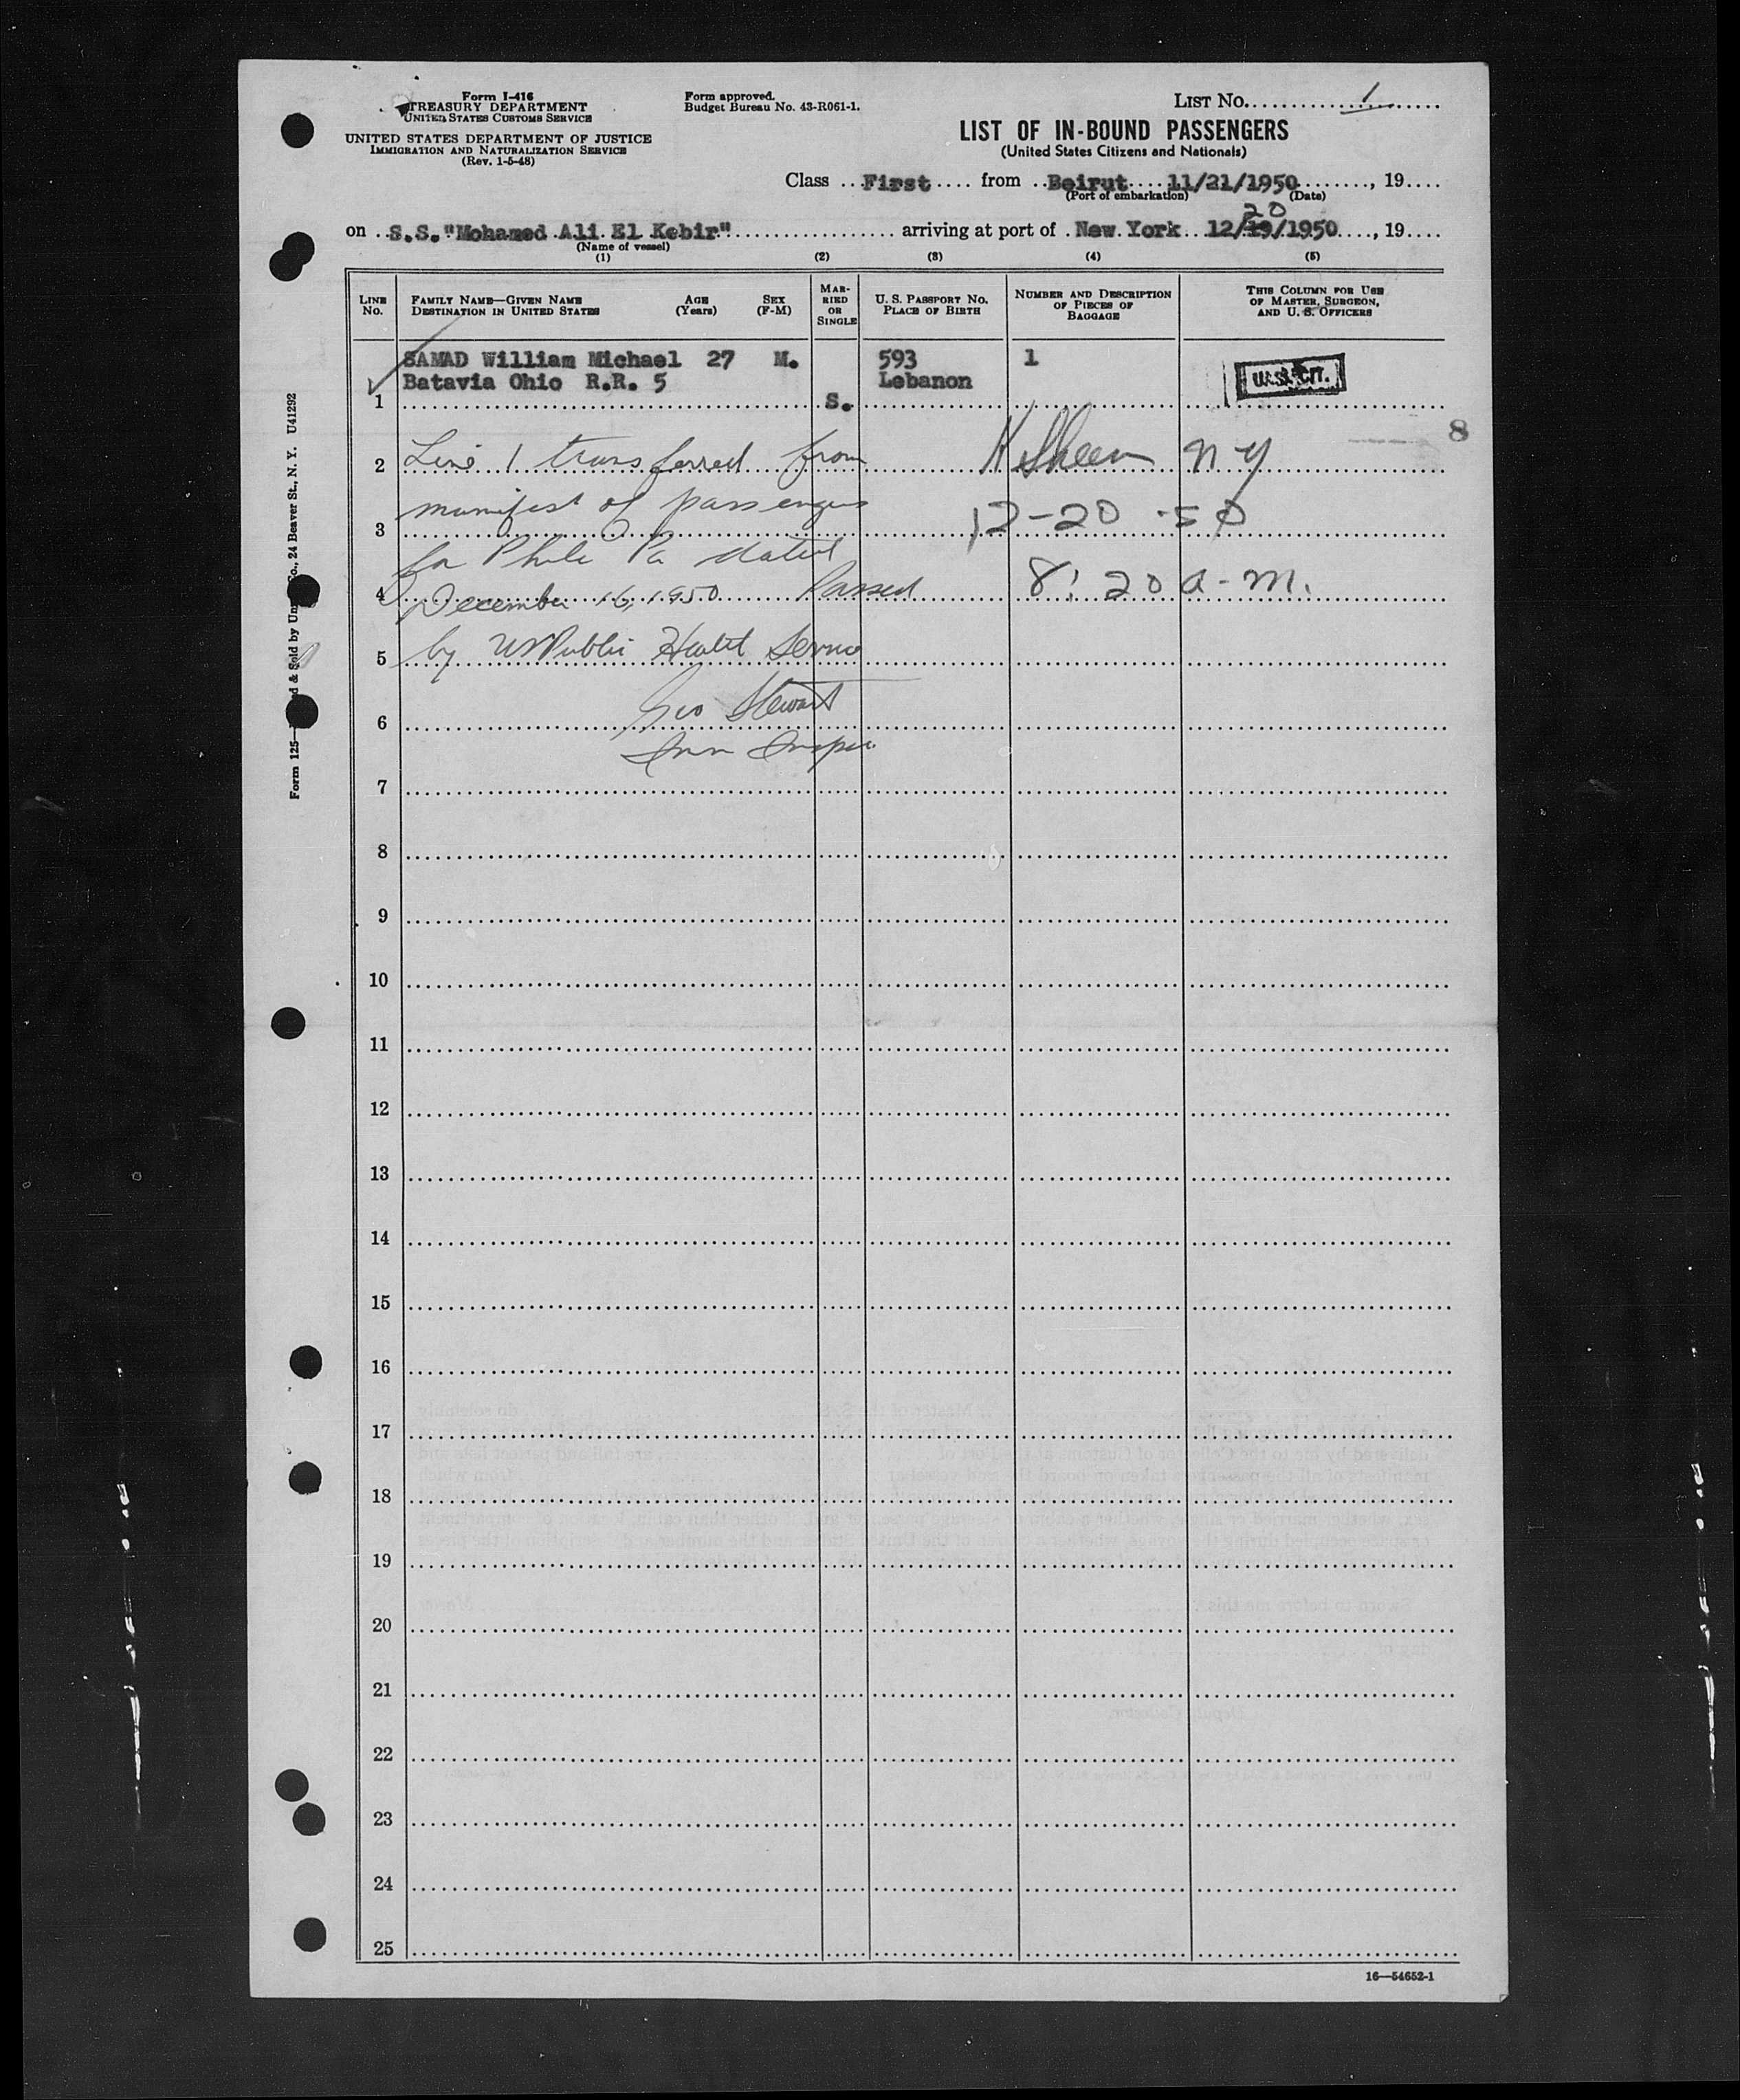 Form I-416
TREASURY DEPARTMENT
UNITED STATES CUSTOMS SERVICE
UNITED STATES DEPARTMENT OF JUSTICE
IMMIGRATION AND NATURALIZATION SERVICE
(Rev. 1-5-48)
Form approved.
Budget Bureau No. 43-R061-1.
LIST No. 1
LIST OF IN-BOUND PASSENGERS
(United States Citizens and Nationals)
Class First from Beirut 11/21/1950, 19
(Port of embarkation) (Date)
20
on S.S."Mohamed Ali El Kebir" arriving at port of New York 12/19/1950, 19
(Name of vessel)
(1) (2) (3) (4) (5)
LINE No.
FAMILY NAME—GIVEN NAME AGE (Years) SEX (F-M)
DESTINATION IN UNITED STATES
MARRIED OR SINGLE
U. S. PASSPORT NO.
PLACE OF BIRTH
NUMBER AND DESCRIPTION OF PIECES OF BAGGAGE
THIS COLUMN FOR USE OF MASTER, SURGEON, AND U. S. OFFICERS
SAMAD William Michael 27 M. 593 1
Batavia Ohio R.R. 5 Lebanon U.S. CIT.
1 S.
8
2 Line 1 transferred from K Sheen N Y
manifest of passengers
3 12-20-50
for Phila Pa dated
4 December 16, 1950 Passed 8:20 a-m.
5 by US Public Health Service
Geo Stewart
6
Imm Inspec.
7
8
9
10
11
12
13
14
15
16
17
18
19
20
21
22
23
24
25
16—54652-1
Form 125— & Sold by Co., 24 Beaver St., N. Y. U41292